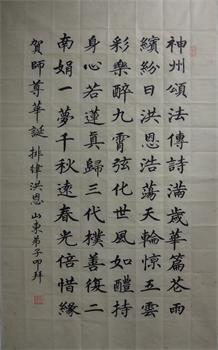 神州頌法傳詩滿歲華篇苍雨
繽紛日洪恩浩蕩天輪惊五雲
彩樂醉九霄弦化世風如醴持
身心若蓮真歸三代樸善復二
南娟一夢千秋速春光倍惜緣
賀師尊華誕 排律洪恩 山東弟子叩拜